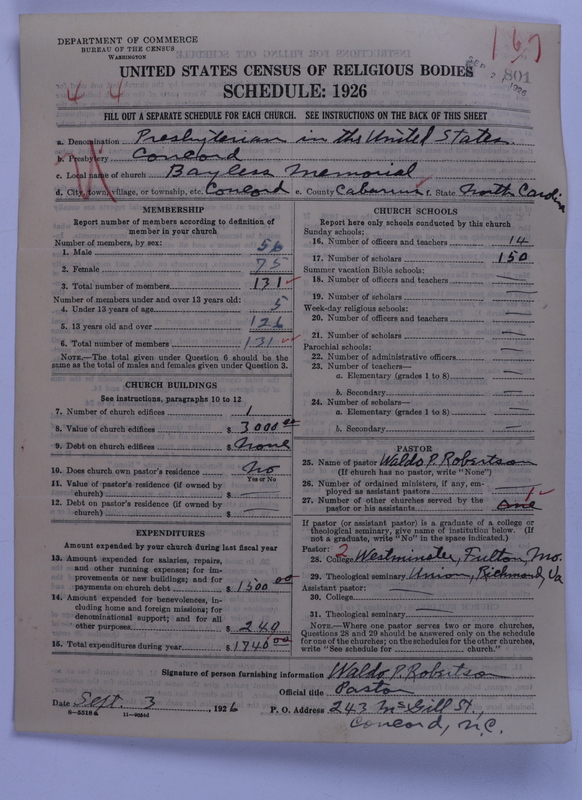 DEPARTMENT OF COMMERCE
BUREAU OF THE CENSUS
WASHINGTON
167
801
4 4
UNITED STATES CENSUS OF RELIGIOUS BODIES
SCHEDULE: 1926
FILL OUT A SEPARATE SCHEDULE FOR EACH CHURCH. SEE INSTRUCTIONS ON THE BACK OF THIS SHEET
a. Denomination Presbyterian in the United States.
b. Presbytery Concord
c. Local name of church Bayless Memorial
d. City, town, village, or township, etc. Concord e. County Cabarrus f. State North Carolina
MEMBERSHIP
Report number of members according to definition of
member in your church
Number of members, by sex:
1. Male 56
2. Female 75
3. Total number of members 131
Number of members under and over 13 years old:
4. Under 13 years of age 5
5. 13 years old and over 126
6. Total number of members 131
NOTE.—The total given under Question 6 should be the
same as the total of males and females given under Question 3.
CHURCH BUILDINGS
See instructions, paragraphs 10 to 12
7. Number of church edifices 1
8. Value of church edifices $ 3000 00
9. Debt on church edifices $ None
10. Does church own pastor's residence No
Yes or No
11. Value of pastor's residence (if owned by
church) $ —
12. Debt on pastor's residence (if owned by
church) $ —
EXPENDITURES
Amount expended by your church during last fiscal year
13. Amount expended for salaries, repairs,
and other running expenses; for im-
provements or new buildings; and for
payments on church debt $ 1500 00
14. Amount expended for benevolences, in-
cluding home and foreign missions; for
denominational support; and for all
other purposes $ 240
15. Total expenditures during year $ 1740 00
CHURCH SCHOOLS
Report here only schools conducted by this church
Sunday schools:
16. Number of officers and teachers 14
17. Number of scholars 150
Summer vacation Bible schools:
18. Number of officers and teachers —
19. Number of scholars —
Week-day religious schools:
20. Number of officers and teachers —
21. Number of scholars —
Parochial schools:
22. Number of administrative officers —
23. Number of teachers—
a. Elementary (grades 1 to 8) —
b. Secondary —
24. Number of scholars—
a. Elementary (grades 1 to 8) —
b. Secondary —
PASTOR
25. Name of pastor Waldo P. Robertson
(If church has no pastor, write "None")
26. Number of ordained ministers, if any, em-
ployed as assistant pastors —
27. Number of other churches served by the
pastor or his assistants one 1
If pastor (or assistant pastor) is a graduate of a college or
theological seminary, give name of institution below. (If
not a graduate, write "No" in the space indicated.)
Pastor: 2
28. College Westminster, Fulton, Mo.
29. Theological seminary Union, Richmond, Va
Assistant pastor:
30. College —
31. Theological seminary —
NOTE.—Where one pastor serves two or more churches,
Questions 28 and 29 should be answered only on the schedule
for one of the churches; on the schedules for the other churches,
write "See schedule for church."
Signature of person furnishing information Waldo P. Robertson
Official title Pastor
Date Sept. 3, 1926 P. O. Address 243 McGill St.,
Concord, N.C.